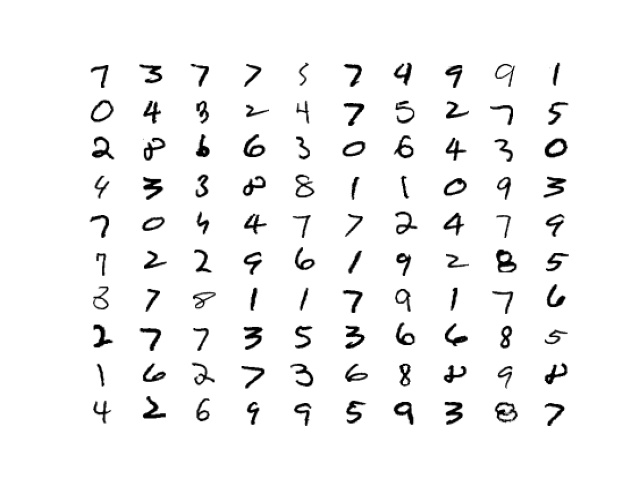 7 3 7 7 5 7 4 9 9 1
0 4 3 2 4 7 5 2 7 5
2 8 6 6 3 0 6 4 3 0
4 3 3 8 8 1 1 0 9 3
7 0 4 4 7 7 2 4 7 9
7 2 2 9 6 1 9 2 8 5
3 7 8 1 1 7 9 1 7 6
2 7 7 3 5 3 6 6 8 5
1 6 2 7 3 6 8 8 9 8
4 2 6 9 9 5 9 3 8 7